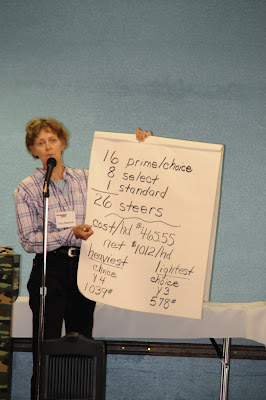 16 prime/choice
8 select
1 standard
26 steers
cost/hd $465.55
net $1012/hd
heaviest lightest
choice choice
Y4 Y3
1039# 578#